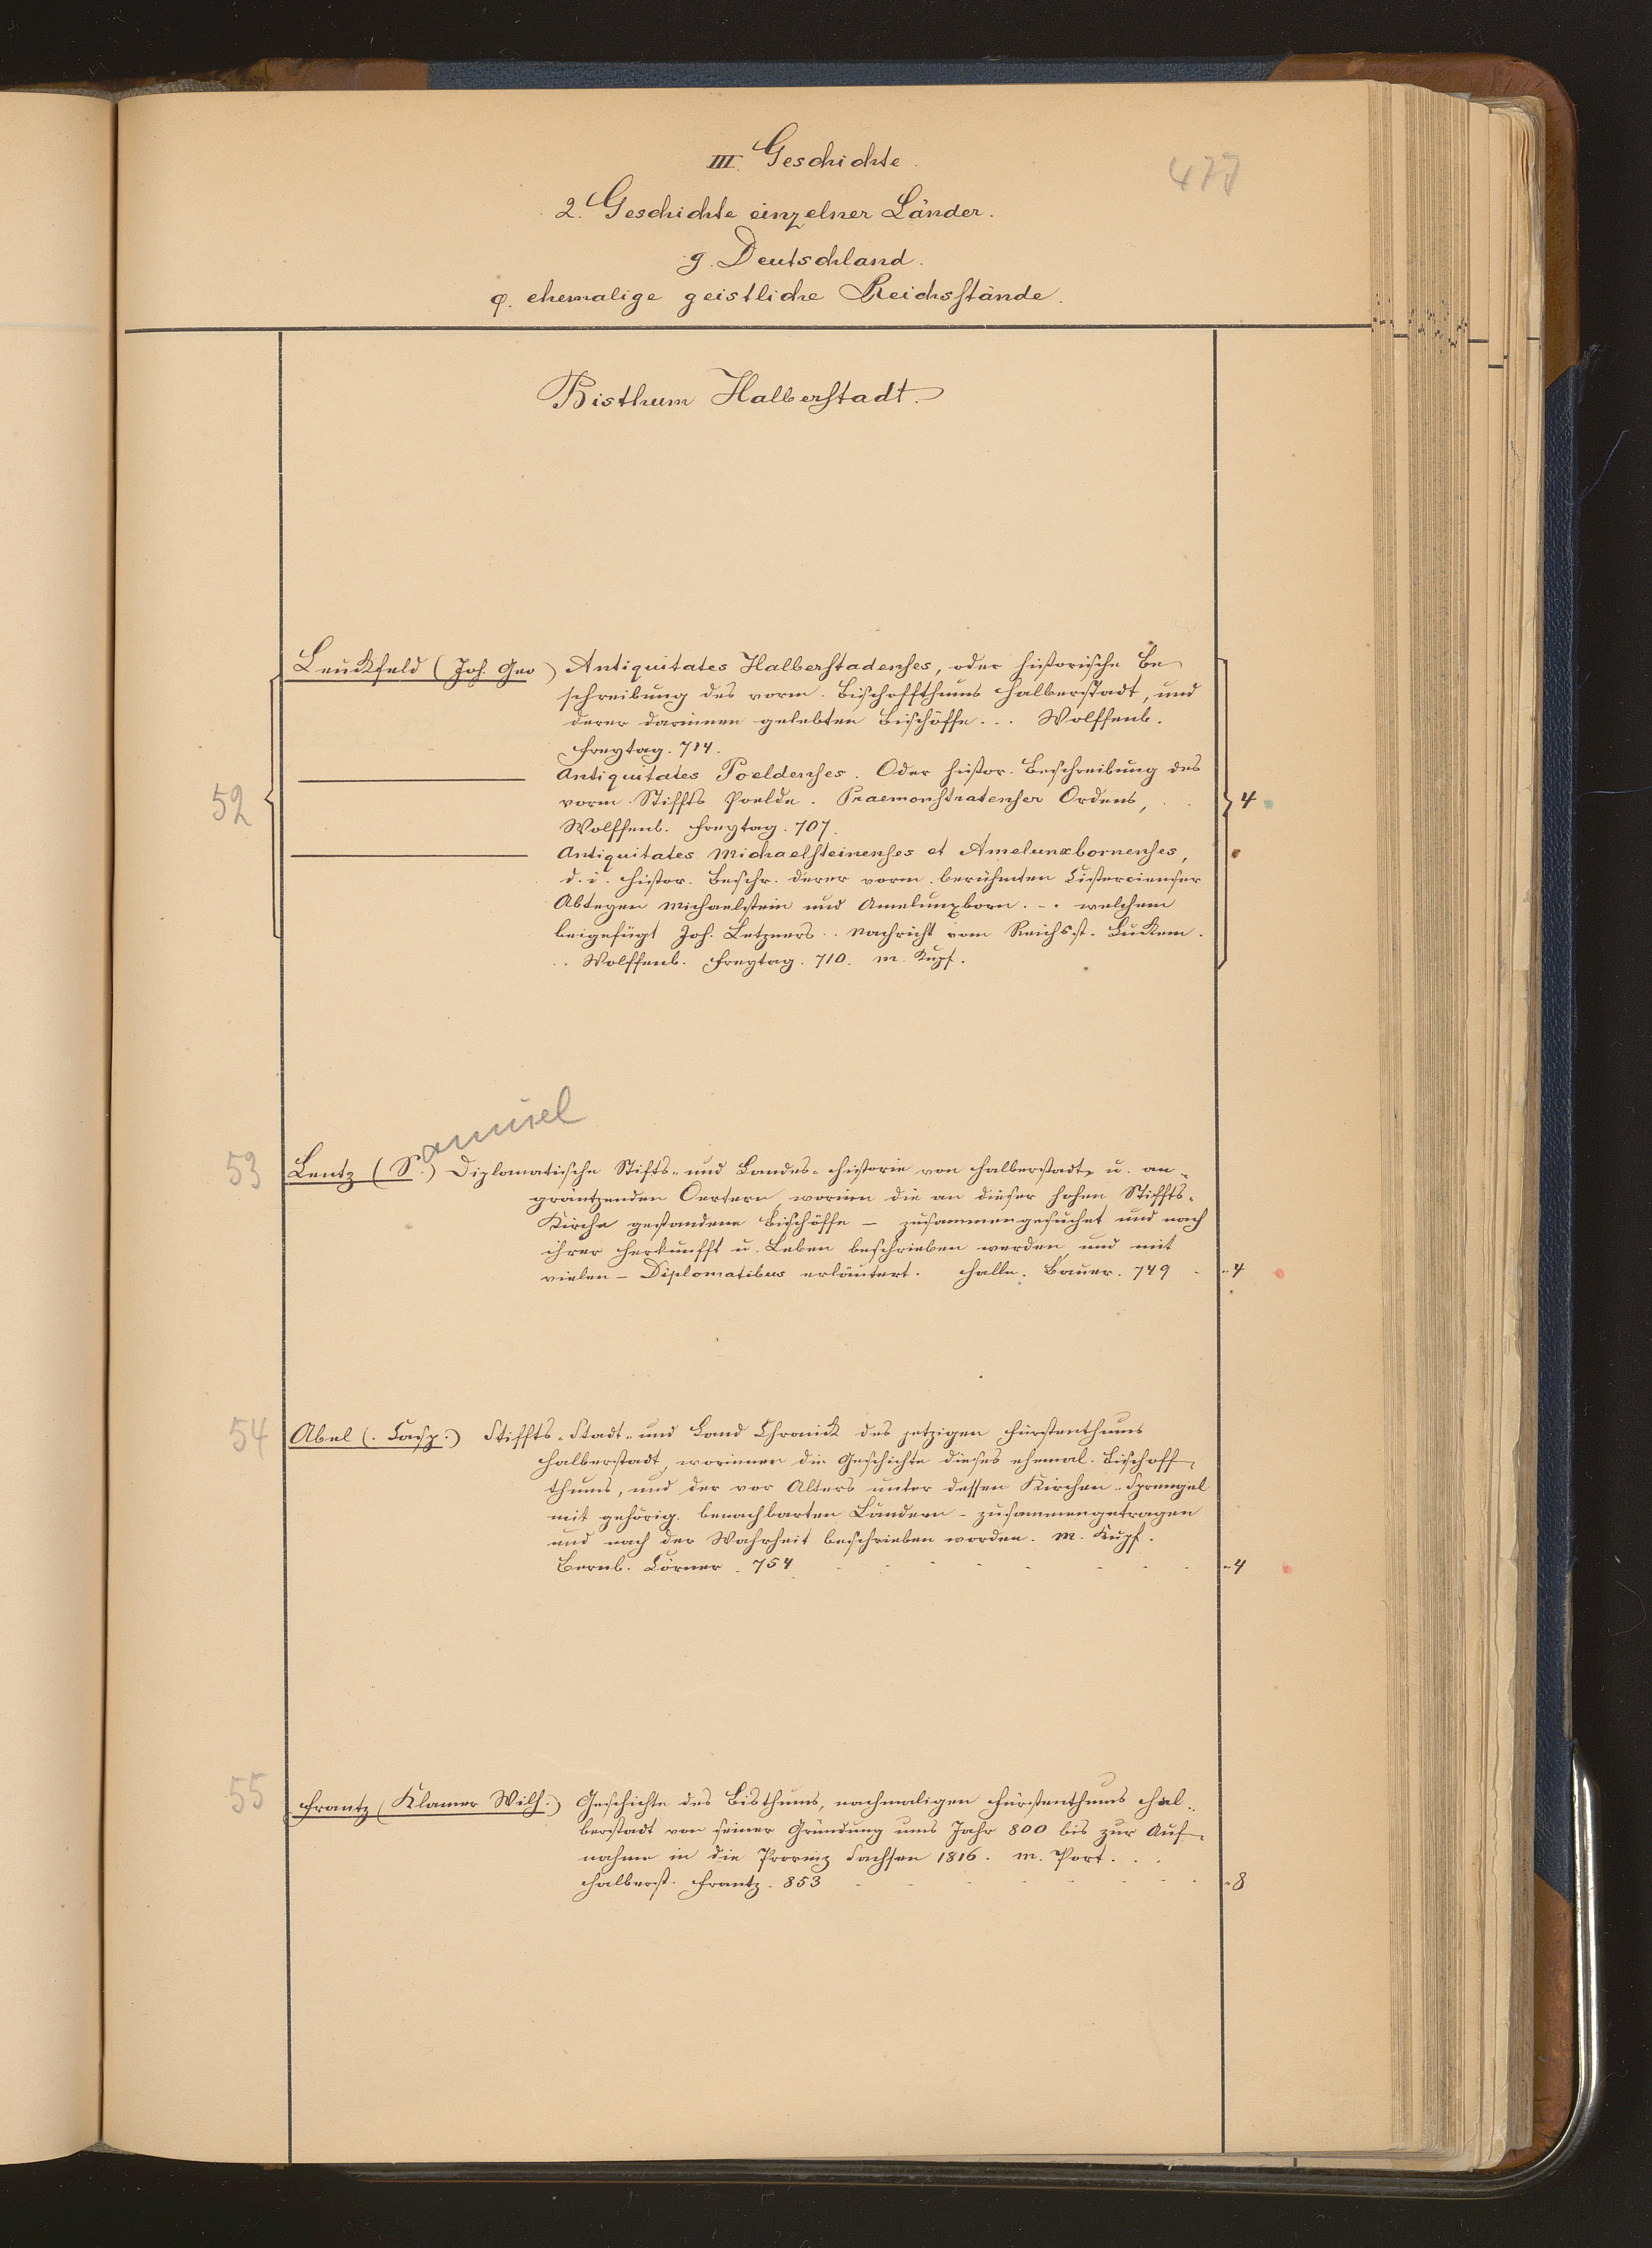 III. Geschichte.
477
2. Geschichte einzelner Länder.
g. Deutschland.
φ. ehemalige geistliche Reichsstände.
Bisthum Halberstadt.
52
Leuckfeld (Joh. Geo) Antiquitates Halberstadenses, oder historische Be-
schreibung des vorm. Bischoffthums Halberstadt, und
derer darinnen gelebten Bischöffe ... Wolffenb.
Freytag. 714.
Antiquitates Poeldenses. Oder histor. Beschreibung des
vorm. Stiffts Poelde. Praemonstratenser Ordens, . . 4
Wolffenb. Freytag. 707.
Antiquitates Michaelsteinenses et Amelunxbornenses,
d. i. histor. Beschr. derer vorm. berühmten Cistercienser
Abteyen Michaelstein und Amelunxborn. - . welchem
beigefügt Joh. Letzners .. Nachricht vom Reichsst. Luckem.
.. Wolffenb. Freytag. 710. m. Kupf.
amuel
53
Lentz (S.) Diplomatische Stifts- und Landes-Historie von Halberstadt u. an-
gräntzenden Oertern, worinn die an dieser hohen Stiffts-
Kirche gestandene Bischöffe – zusammengesuchet und nach
ihrer Herkunfft u. Leben beschrieben werden, und mit
vielen – Diplomatibus erläutert. Halle. Bauer. 749 - „4
54
Abel (. Casp.) Stiffts- Stadt- und Land Chronick des jetzigen Fürstenthums
Halberstadt, worinnen die Geschichte dieses ehemal. Bischoff-
thums, und der vor Alters unter dessen Kirchen-Sprengel
mit gehörig. benachbarten Ländern – zusammengetragen
und nach der Wahrheit beschrieben worden. m. Kupf.
Bernb. Cörner. 754 „4
55
Frantz (Klamer Wilh.) Geschichte des Bisthums, nachmaligen Fürstenthums Hal-
berstadt von seiner Gründung ums Jahr 800 bis zur Auf-
nahme in die Provinz Sachsen 1816. m. Port. . .
Halberst. Frantz. 853 „8